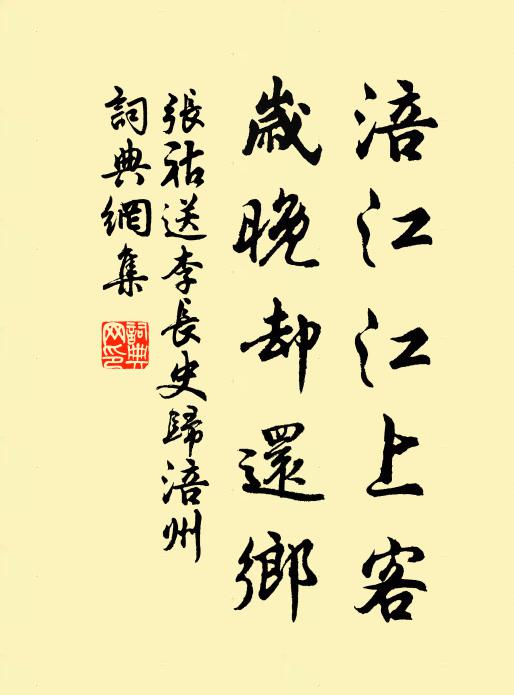 涪江江上客
歲晚却還鄉
張祜送李長史歸涪州
詞典網集
詞典網印